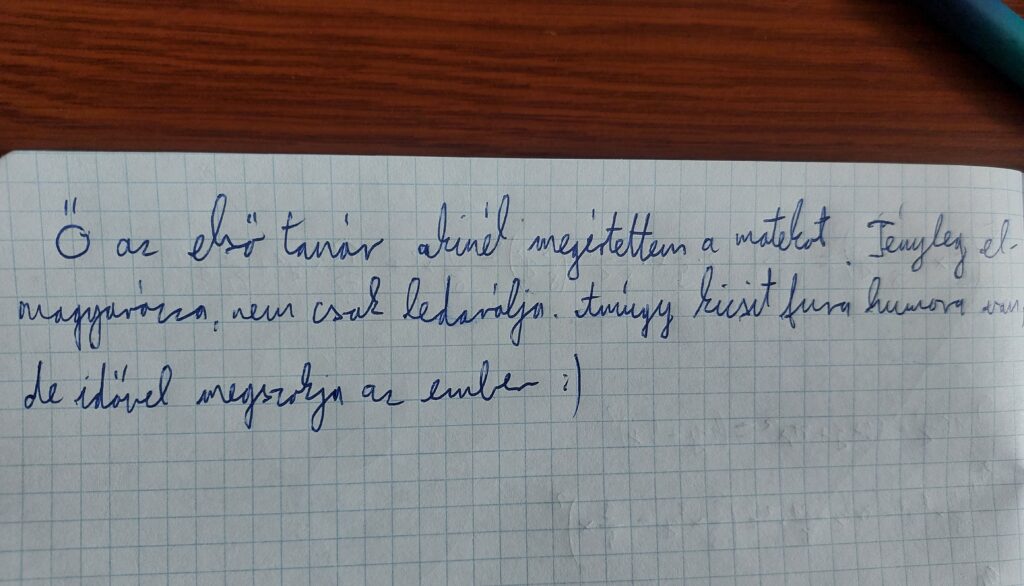 Ő az első tanár akinél megértettem a matekot. Tényleg el-
magyarázza, nem csak ledarálja. Amúgy kicsit fura humora van,
de idővel megszokja az ember :)